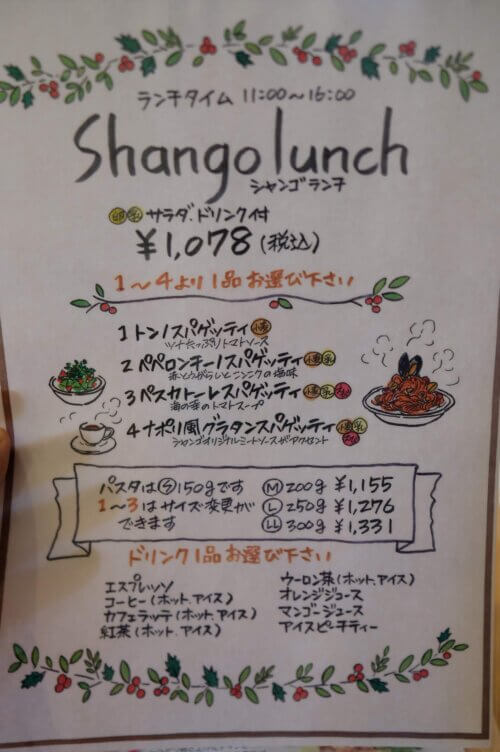 ランチタイム 11:00～16:00
Shango lunch
シャンゴランチ
卵 乳 サラダ、ドリンク付
¥1,078 (税込)
1～4より1品お選び下さい
1 トンノスパゲッティ 小麦
ツナたっぷりトマトソース
2 ペペロンチーノスパゲッティ 小麦 乳
赤とうがらしとニンニクの塩味
3 ペスカトーレスパゲッティ 小麦 乳
海の幸のトマトスープ
4 ナポリ風グラタンスパゲッティ 小麦 乳
シャンゴオリジナルミートソースがアクセント
パスタは S 150gです
1～3はサイズ変更が
できます
M 200g ¥1,155
L 250g ¥1,276
LL 300g ¥1,331
ドリンク1品お選び下さい
エスプレッソ
コーヒー(ホット、アイス)
カフェラッテ(ホット、アイス)
紅茶(ホット、アイス)
ウーロン茶(ホット、アイス)
オレンジジュース
マンゴージュース
アイスピーチティー